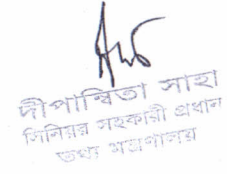 দীপান্বিতা সাহা
সিনিয়র সহকারী প্রধান
তথ্য মন্ত্রণালয়